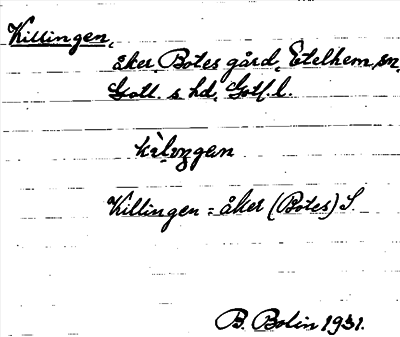 Killingen,
åker, Botes gård, Etelhem sn,
Gotl. s. hd, Gotl. l.
kìlıŋgan
Killingen = åker (Botes) S.
B. Bolin 1931.